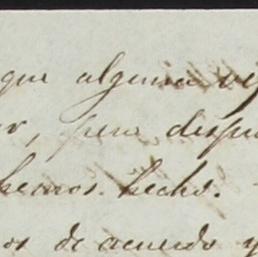 que alguna
pero despu
hemos hecho.
os de acuerdo y